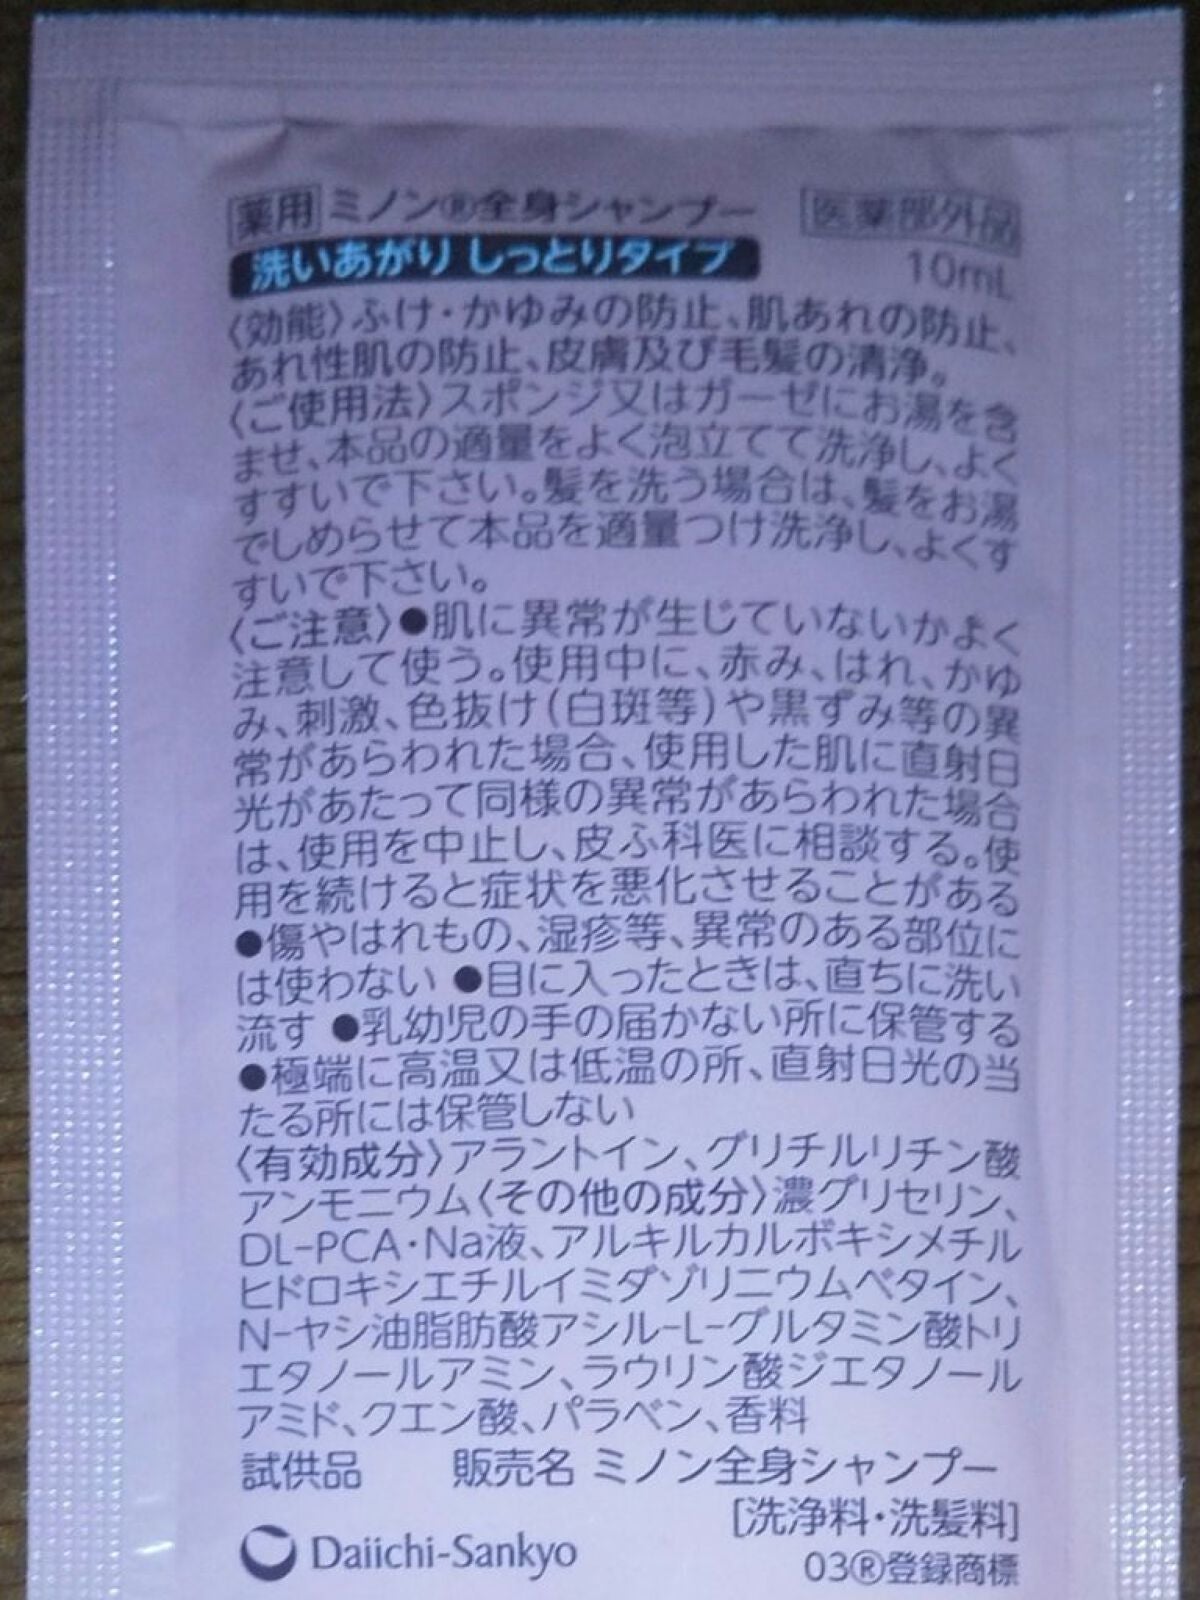 薬用 ミノン®全身シャンプー 医薬部外品
洗いあがり しっとりタイプ 10mL
〈効能〉ふけ・かゆみの防止、肌あれの防止、
あれ性肌の防止、皮膚及び毛髪の清浄。
〈ご使用法〉スポンジ又はガーゼにお湯を含
ませ、本品の適量をよく泡立てて洗浄し、よく
すすいで下さい。髪を洗う場合は、髪をお湯
でしめらせて本品を適量つけ洗浄し、よくす
すいで下さい。
〈ご注意〉●肌に異常が生じていないかよく
注意して使う。使用中に、赤み、はれ、かゆ
み、刺激、色抜け(白斑等)や黒ずみ等の異
常があらわれた場合、使用した肌に直射日
光があたって同様の異常があらわれた場合
は、使用を中止し、皮ふ科医に相談する。使
用を続けると症状を悪化させることがある
●傷やはれもの、湿疹等、異常のある部位に
は使わない ●目に入ったときは、直ちに洗い
流す ●乳幼児の手の届かない所に保管する
●極端に高温又は低温の所、直射日光の当
たる所には保管しない
〈有効成分〉アラントイン、グリチルリチン酸
アンモニウム〈その他の成分〉濃グリセリン、
DL-PCA・Na液、アルキルカルボキシメチル
ヒドロキシエチルイミダゾリニウムベタイン、
N-ヤシ油脂肪酸アシル-L-グルタミン酸トリ
エタノールアミン、ラウリン酸ジエタノール
アミド、クエン酸、パラベン、香料
試供品 販売名 ミノン全身シャンプー
[洗浄料・洗髪料]
Daiichi-Sankyo 03®登録商標